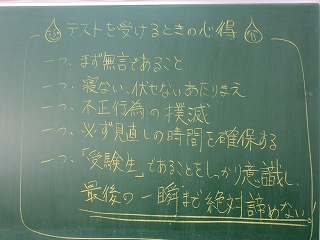 テストを受けるときの心得
一つ、まず無言であること
一つ、寝ない、伏せないあたりまえ
一つ、不正行為の撲滅
一つ、必ず見直しの時間を確保する
一つ、「受験生」であることをしっかり意識し、
最後の一瞬まで絶対諦めない!